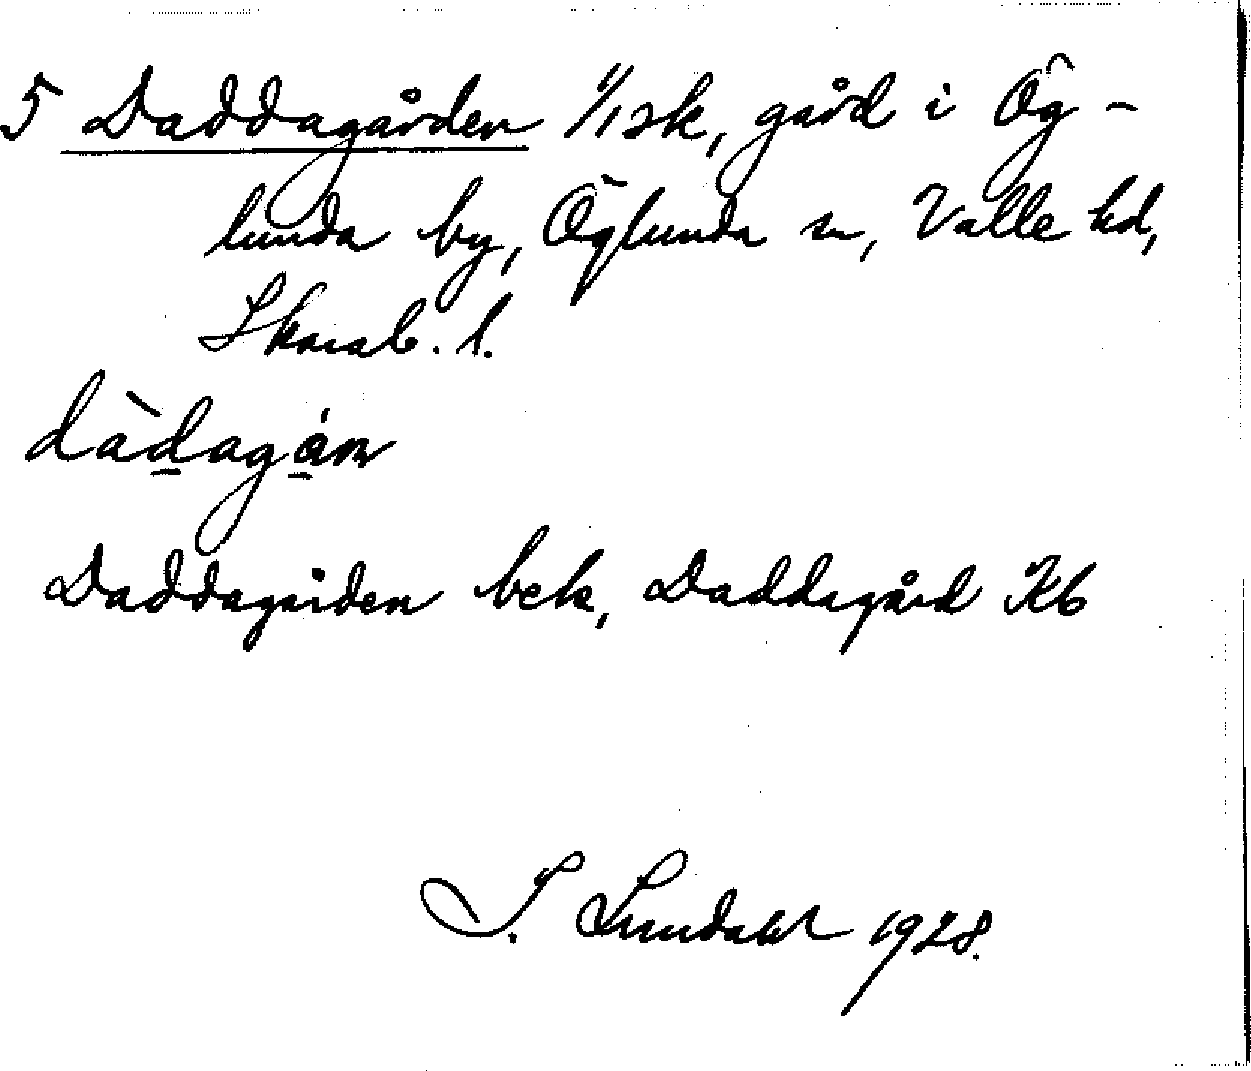 5 Daddagården 1/1 sk, gård i Ög-
lunda by, Öglunda sn, Valle hd,
Skarab. l.
dàdagán
Daddagården bek, Daddagård Kb
I. Lundahl 1928.